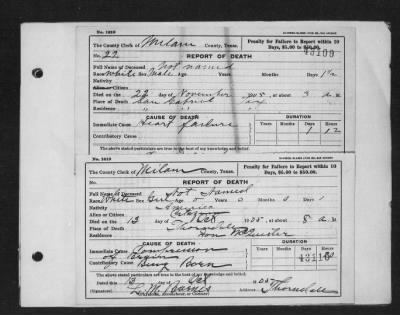 No. 1019
The County Clerk of Milam County, Texas.
Penalty for Failure to Report within 10 Days, $5.00 to $50.00.
No. 22.
43109
REPORT OF DEATH
Full Name of Deceased Not named
Race White Male Age Years Months Days 1/2
Nativity
Alien or Citizen
Died on the 22 day of November 1905, at about 3 a. m.
Place of Death San Gabriel
Residence
CAUSE OF DEATH
DURATION
Immediate Cause Heart failure
Contributory Cause
The above stated particulars are true to the best of my knowledge and belief.
No. 1019
The County Clerk of Milam County, Texas.
Penalty for Failure to Report within 10 Days, $5.00 to $50.00.
REPORT OF DEATH
Full Name of Deceased Not Named
Race White Girl Age 0 Years 0 Months 0 Days
Nativity America
Alien or Citizen Citizen
Died on the 13 day of Oct 1905, at about 8 a. m.
Place of Death Thorndale
Residence
CAUSE OF DEATH
DURATION
Immediate Cause Compression of Brain
Contributory Cause Being Born
The above stated particulars are true to the best of my knowledge and belief.
Dated this 13 day of Oct 1905 Thorndale